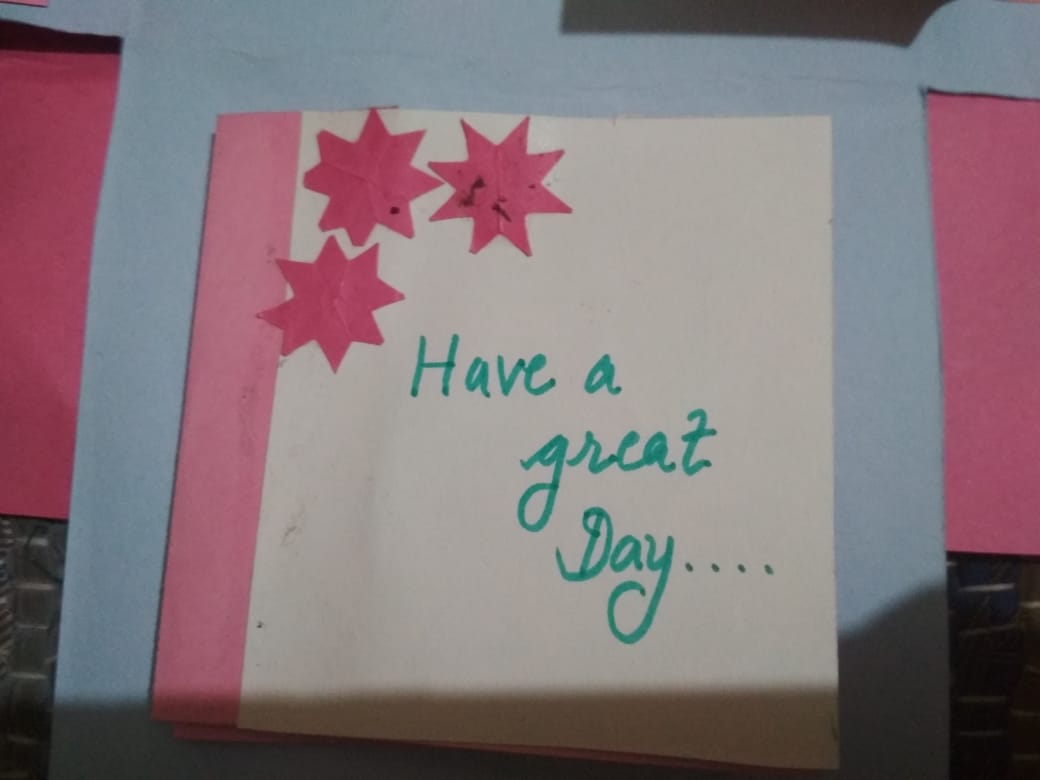 Have a
great
Day....